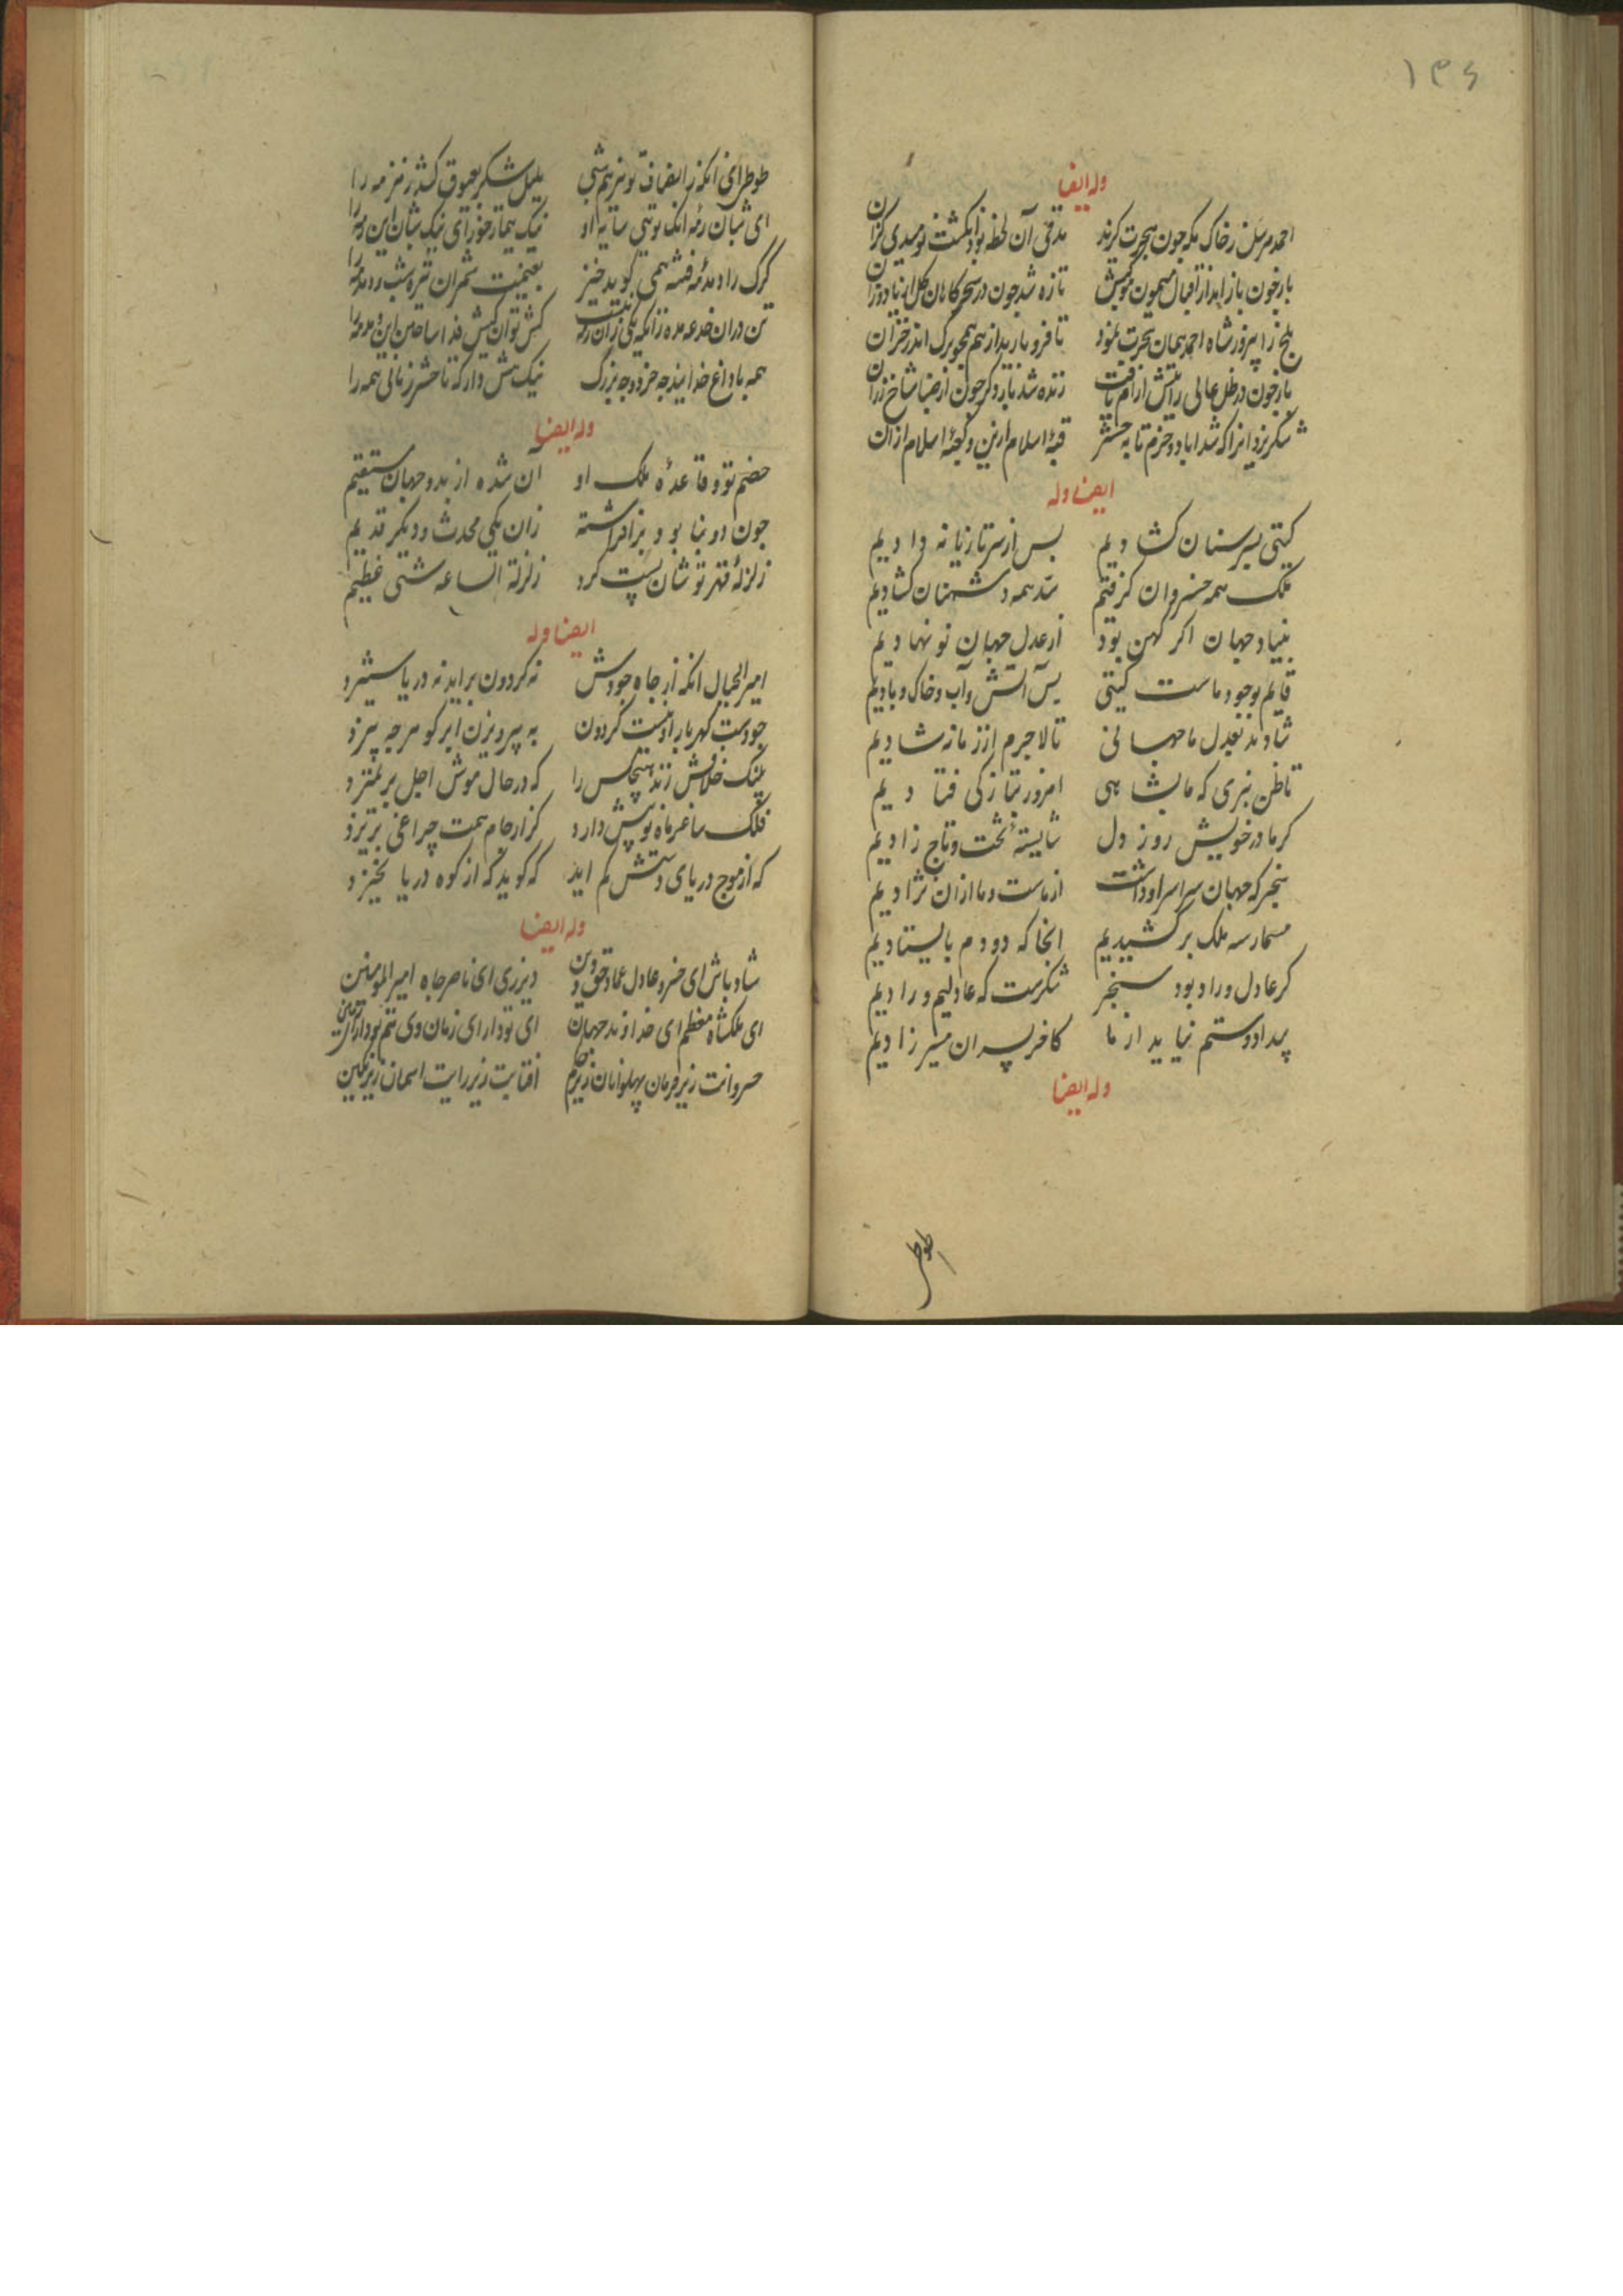 ۱۳۶
وله ایضا
احمد مرسل ز خاک مکه چون هجرت کزید مدتی آن لحظه بود
باز چون باز آمد از اقبال میمون موکبش تازه شد چون در سحرکاهان کل از باد وزان
بلخ را پیروز شاه احمد همان هجرت نمود تا فرو بارید از هم همجو برک اندر خزان
باز چون در ظل عالی رایتش آرام یافت زنده شد بار دکر چون از صبا شاخ رزان
شکر یزدانرا که شد آباد و خرم تا به حشر قبهٔ اسلام ازین و کعبهٔ اسلام ازان
ایضا وله
کیتی بسر سنان کشادیم بس از سر تازیانه دادیم
ملک همه خسروان کرفتیم سد همه دشمنان کشادیم
بنیاد جهان اکر کهن بود از عدل جهان نو نهادیم
قایم بوجود ماست کیتی بس آتش و آب و خاک و بادیم
شادند بعدل ما جهانی تا لاجرم از زمانه شادیم
تا ظن نبری که ما بشاهی امروز بتازکی فتادیم
کز مادر خویش روز اول شایستهٔ تخت و تاج زادیم
سنجر که جهان سراسر او داشت از ماست و ما ازان نژادیم
مسمار سه ملک برکشیدیم انجا که دو دم بایستادیم
کر عادل و راد بود سنجر شکرست که عادلیم و رادیم
بیداد و ستم نیاید از ما کاخر پسران میر زادیم
وله ایضا
طوطی
طوطی ای آنکه ز انصاف تو هر نیم شبی بلبل شکر بعیوق کشد زمزمه را
ای شبان رمه آنک تویی سایه او نیک تیمار خور ای نیک شبان این رمه را
کرک را دمدمهٔ فتنه همی کوید خیز بغنیمت شمر آن تیره شب و دمدمه را
تن در آن خدعه مده زانکه یکی زان رمه نیست کش توان کیش فدا ساختن این دمدمه را
همه با داغ خدایند چه خرد و چه بزرک نیک هش دار که تا حشر زنانی همه را
وله ایضا
خصم تو و قاعدهٔ ملک او آن شده از بدو جهان مستقیم
چون دو بنا بود برافراشته زان یکی محدث و دیکر قدیم
زلزلهٔ قهر تو شان پست کرد زلزلة الساعة شئ عظیم
ایضا وله
امیر الجبال آنکه از جاه و جودش نه کردون براید نه دریا ستیزد
چو دست کهربار اوست کردون به پرویزن ابر کوهر چه بیزد
پلنک خلافش زند هیچکس را که در حال موش اجل بر نمیزد
فلک ساغر ماه نو پیش دارد کز ار جام همت جراعی بریزد
که از موج دریای دستش کم آید که کوید که از کوه دریا نخیزد
وله ایضا
شاد باش ای خسرو عادل عماد حق و دین دیر زی ای ناصر جاه امیر المومنین
ای ملکشاه معظم ای خداوند جهان ای تو دارای زمان وی تو دارای زمین
خسروانت زیر فرمان پهلوانان زیر حکم آفتابت زیر رایت آسمان زیر نکین